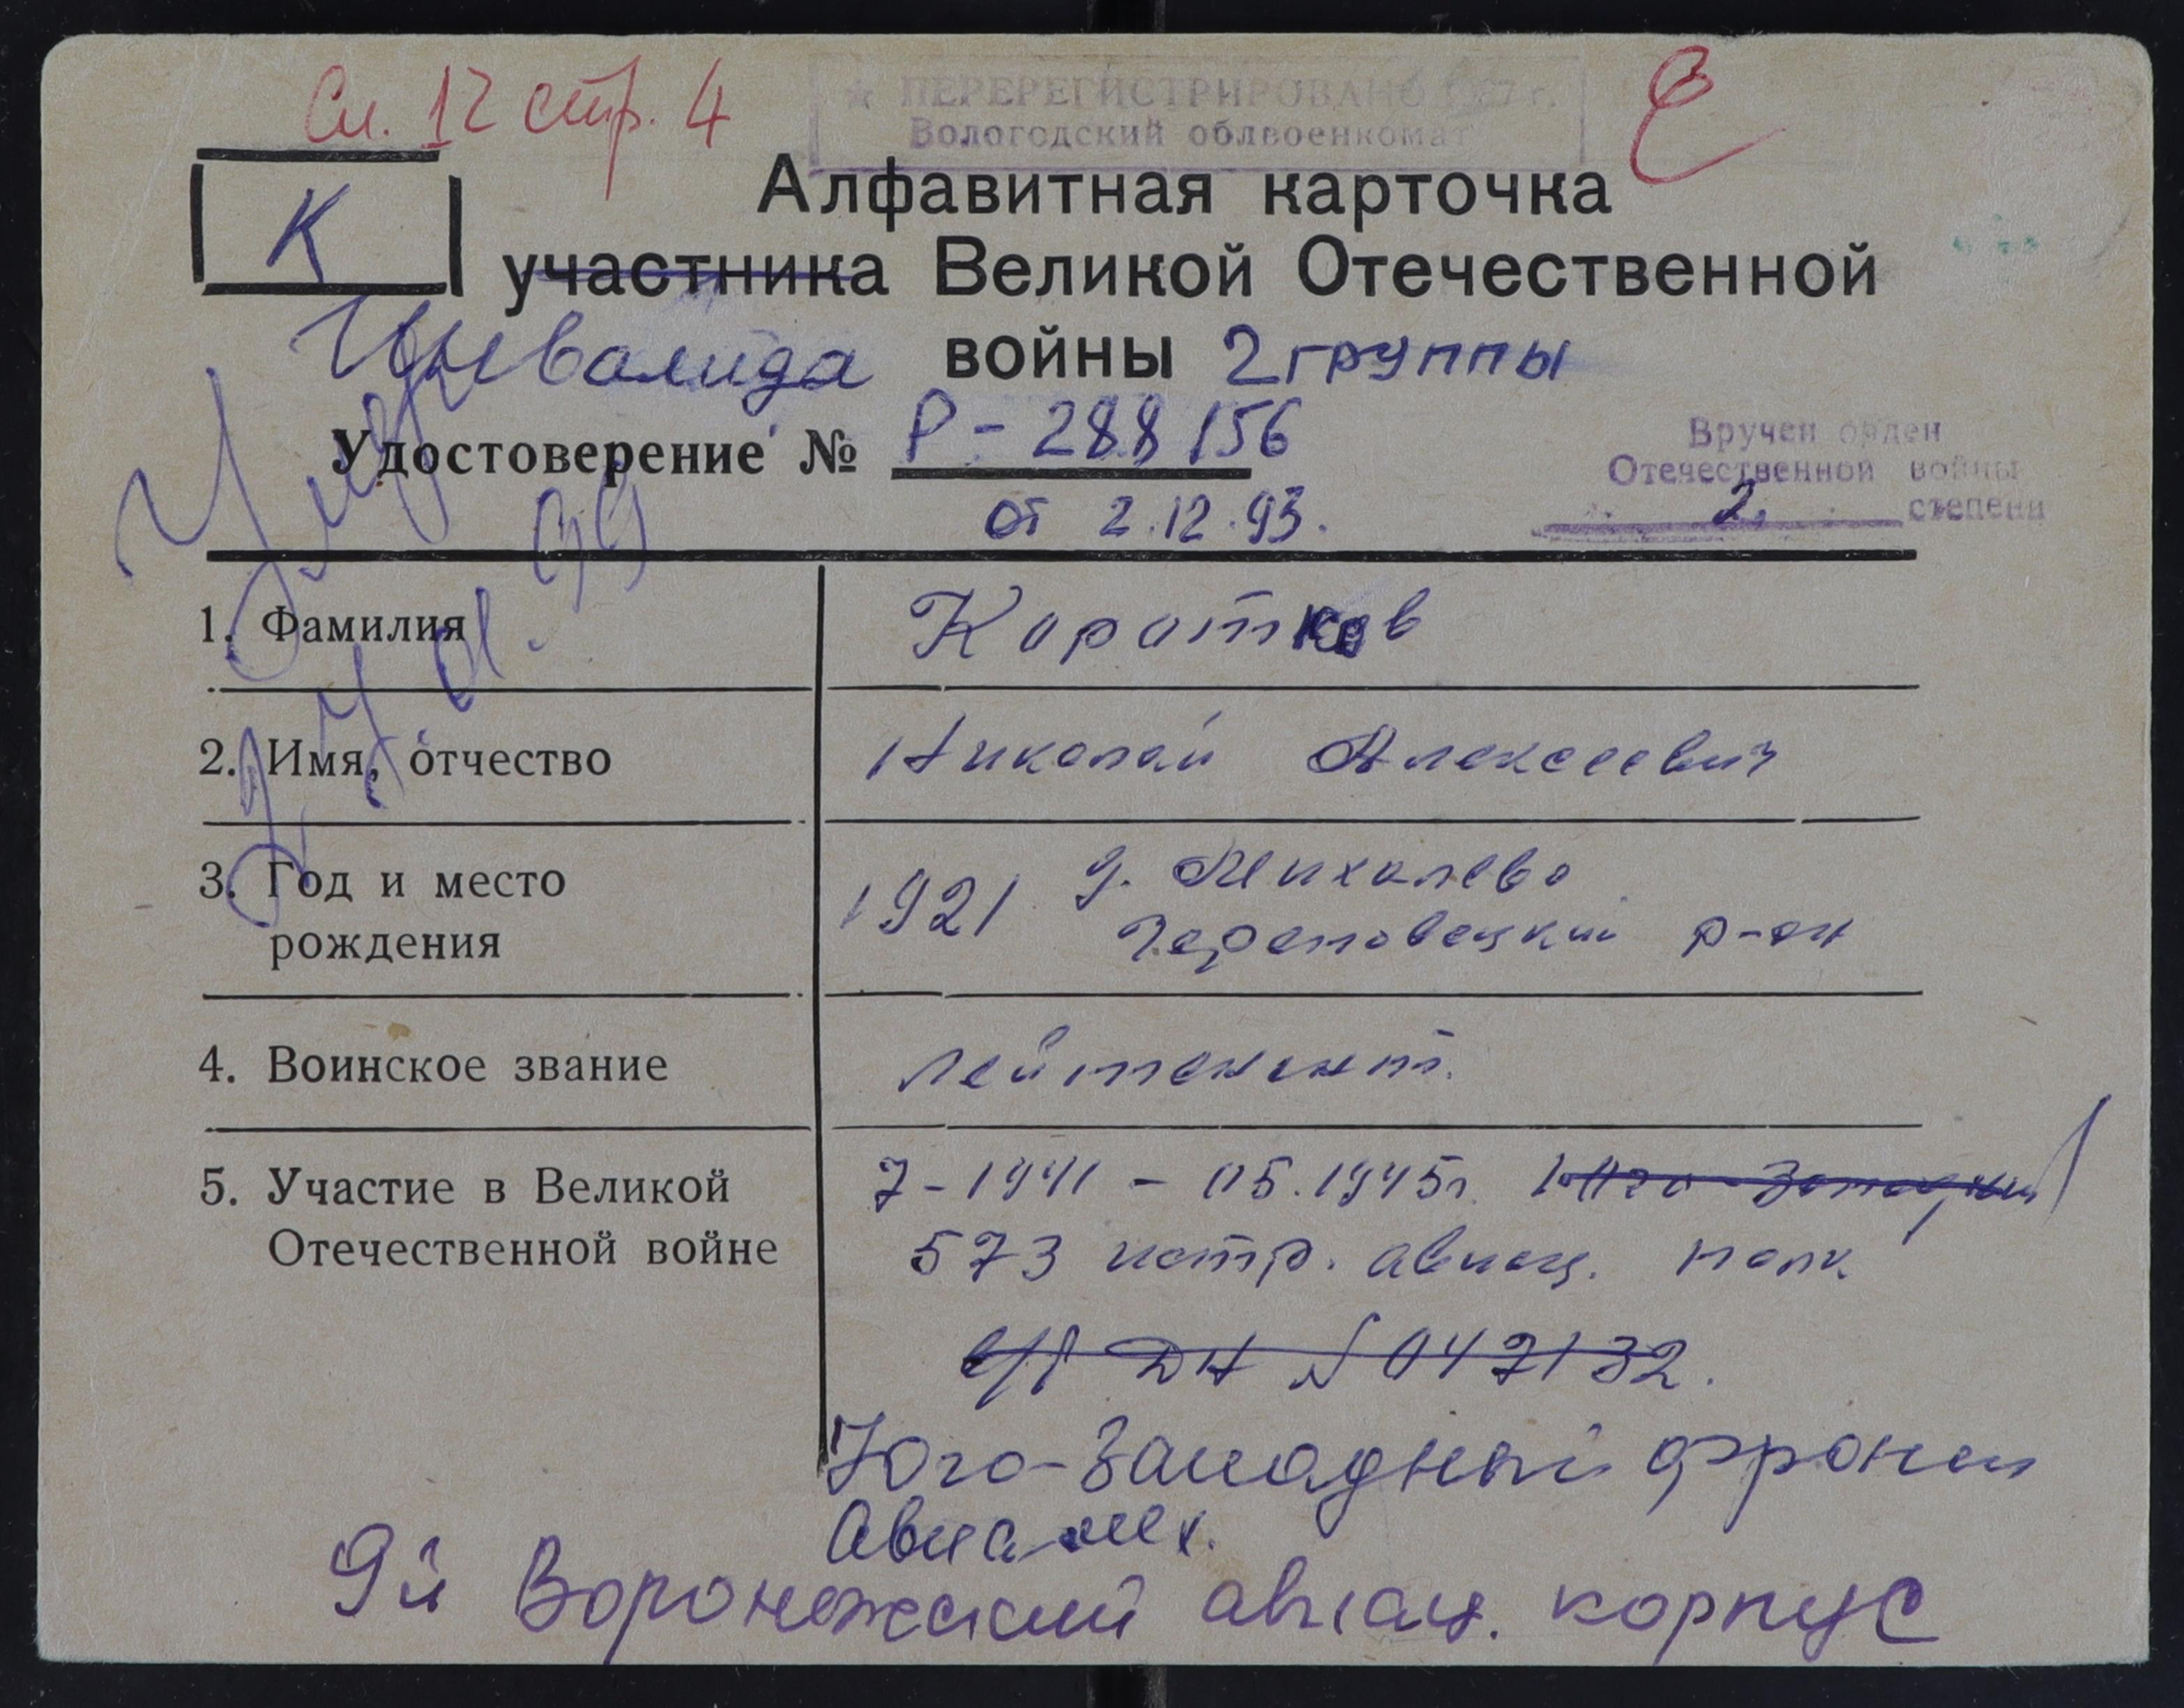 См. 12 стр. 4
С
★ ПЕРЕРЕГИСТРИРОВАНО г.
Вологодский облвоенкомат
К
Алфавитная карточка
участника Великой Отечественной
Инвалида войны 2 группы
Удостоверение № Р-288156
от 2.12.93.
Вручен орден
Отечественной войны
2 степени
Умер
99
1. Фамилия Коротков
2. Имя, отчество Николай Алексеевич
3. Год и место рождения 1921 д. Михалево
Череповецкий р-он
4. Воинское звание лейтенант.
5. Участие в Великой Отечественной войне 7-1941 - 05.1945г. Юго-Западный
573 истр. авиац. полк
ДН № 047132.
Юго-Западный фронт
Авиамех.
9й Воронежский авиац. корпус